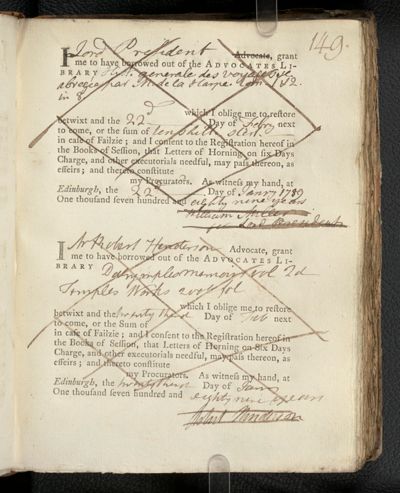 149.
I Lord President Advocate, grant
me to have borrowed out of the ADVOCATES LI-
BRARY Hist. generale des voyages
abrogee par M. de la Harpe. tom 1 & 2.
in 8
which I oblige me to restore
betwixt and the 22 Day of Febry next
to come, or the sum of ten shill ster.
in case of Failzie; and I consent to the Registration hereof in
the Books of Session, that Letters of Horning on six Days
Charge, and other executorials needful, may pass thereon, as
effeirs; and thereto constitute
my Procurators. As witness my hand, at
Edinburgh, the 22 Day of Janry 1789
One thousand seven hundred and eighty nine years
William Miller
for Lord President
I Mr Robert Henderson Advocate, grant
me to have borrowed out of the ADVOCATES LI-
BRARY Dalrymples memoirs vol 2d
Temples Works 2 vol fol
which I oblige me to restore
betwixt and the twenty third Day of Feb next
to come, or the Sum of
in case of Failzie; and I consent to the Registration hereof in
the Books of Session, that Letters of Horning on Six Days
Charge, and other executorials needful, may pass thereon, as
effeirs; and thereto constitute
my Procurators. As witness my hand, at
Edinburgh, the twenty third Day of Janry
One thousand seven hundred and eighty nine years
Robert Henderson